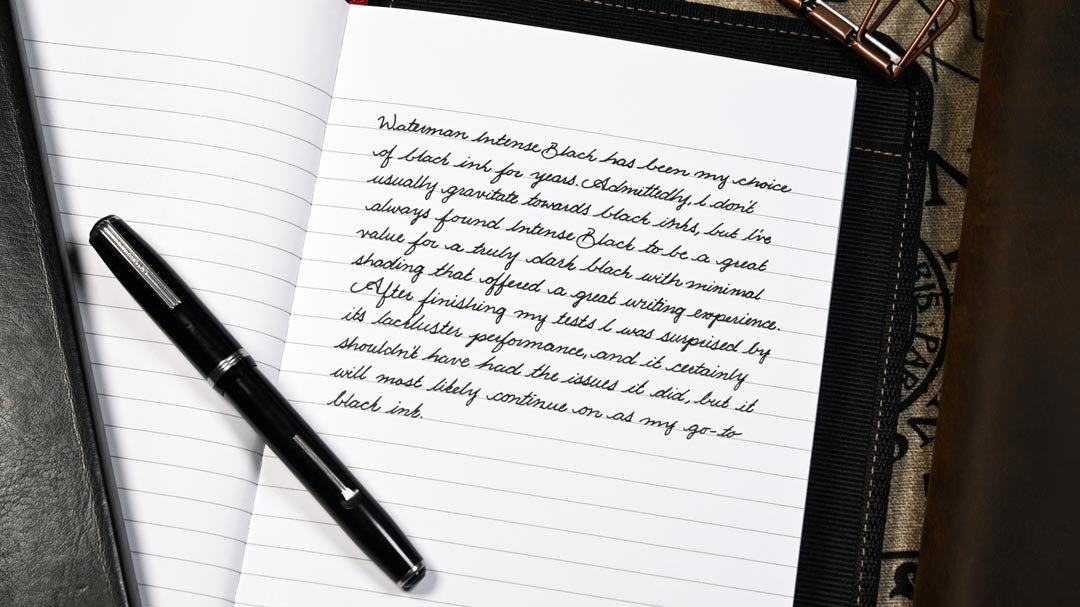 Waterman Intense Black has been my choice
of black ink for years. Admittedly, I don't
usually gravitate towards black inks, but I've
always found Intense Black to be a great
value for a truly dark black with minimal
shading that offered a great writing experience.
After finishing my tests I was surprised by
its lackluster performance, and it certainly
shouldn't have had the issues it did, but it
will most likely continue on as my go-to
black ink.